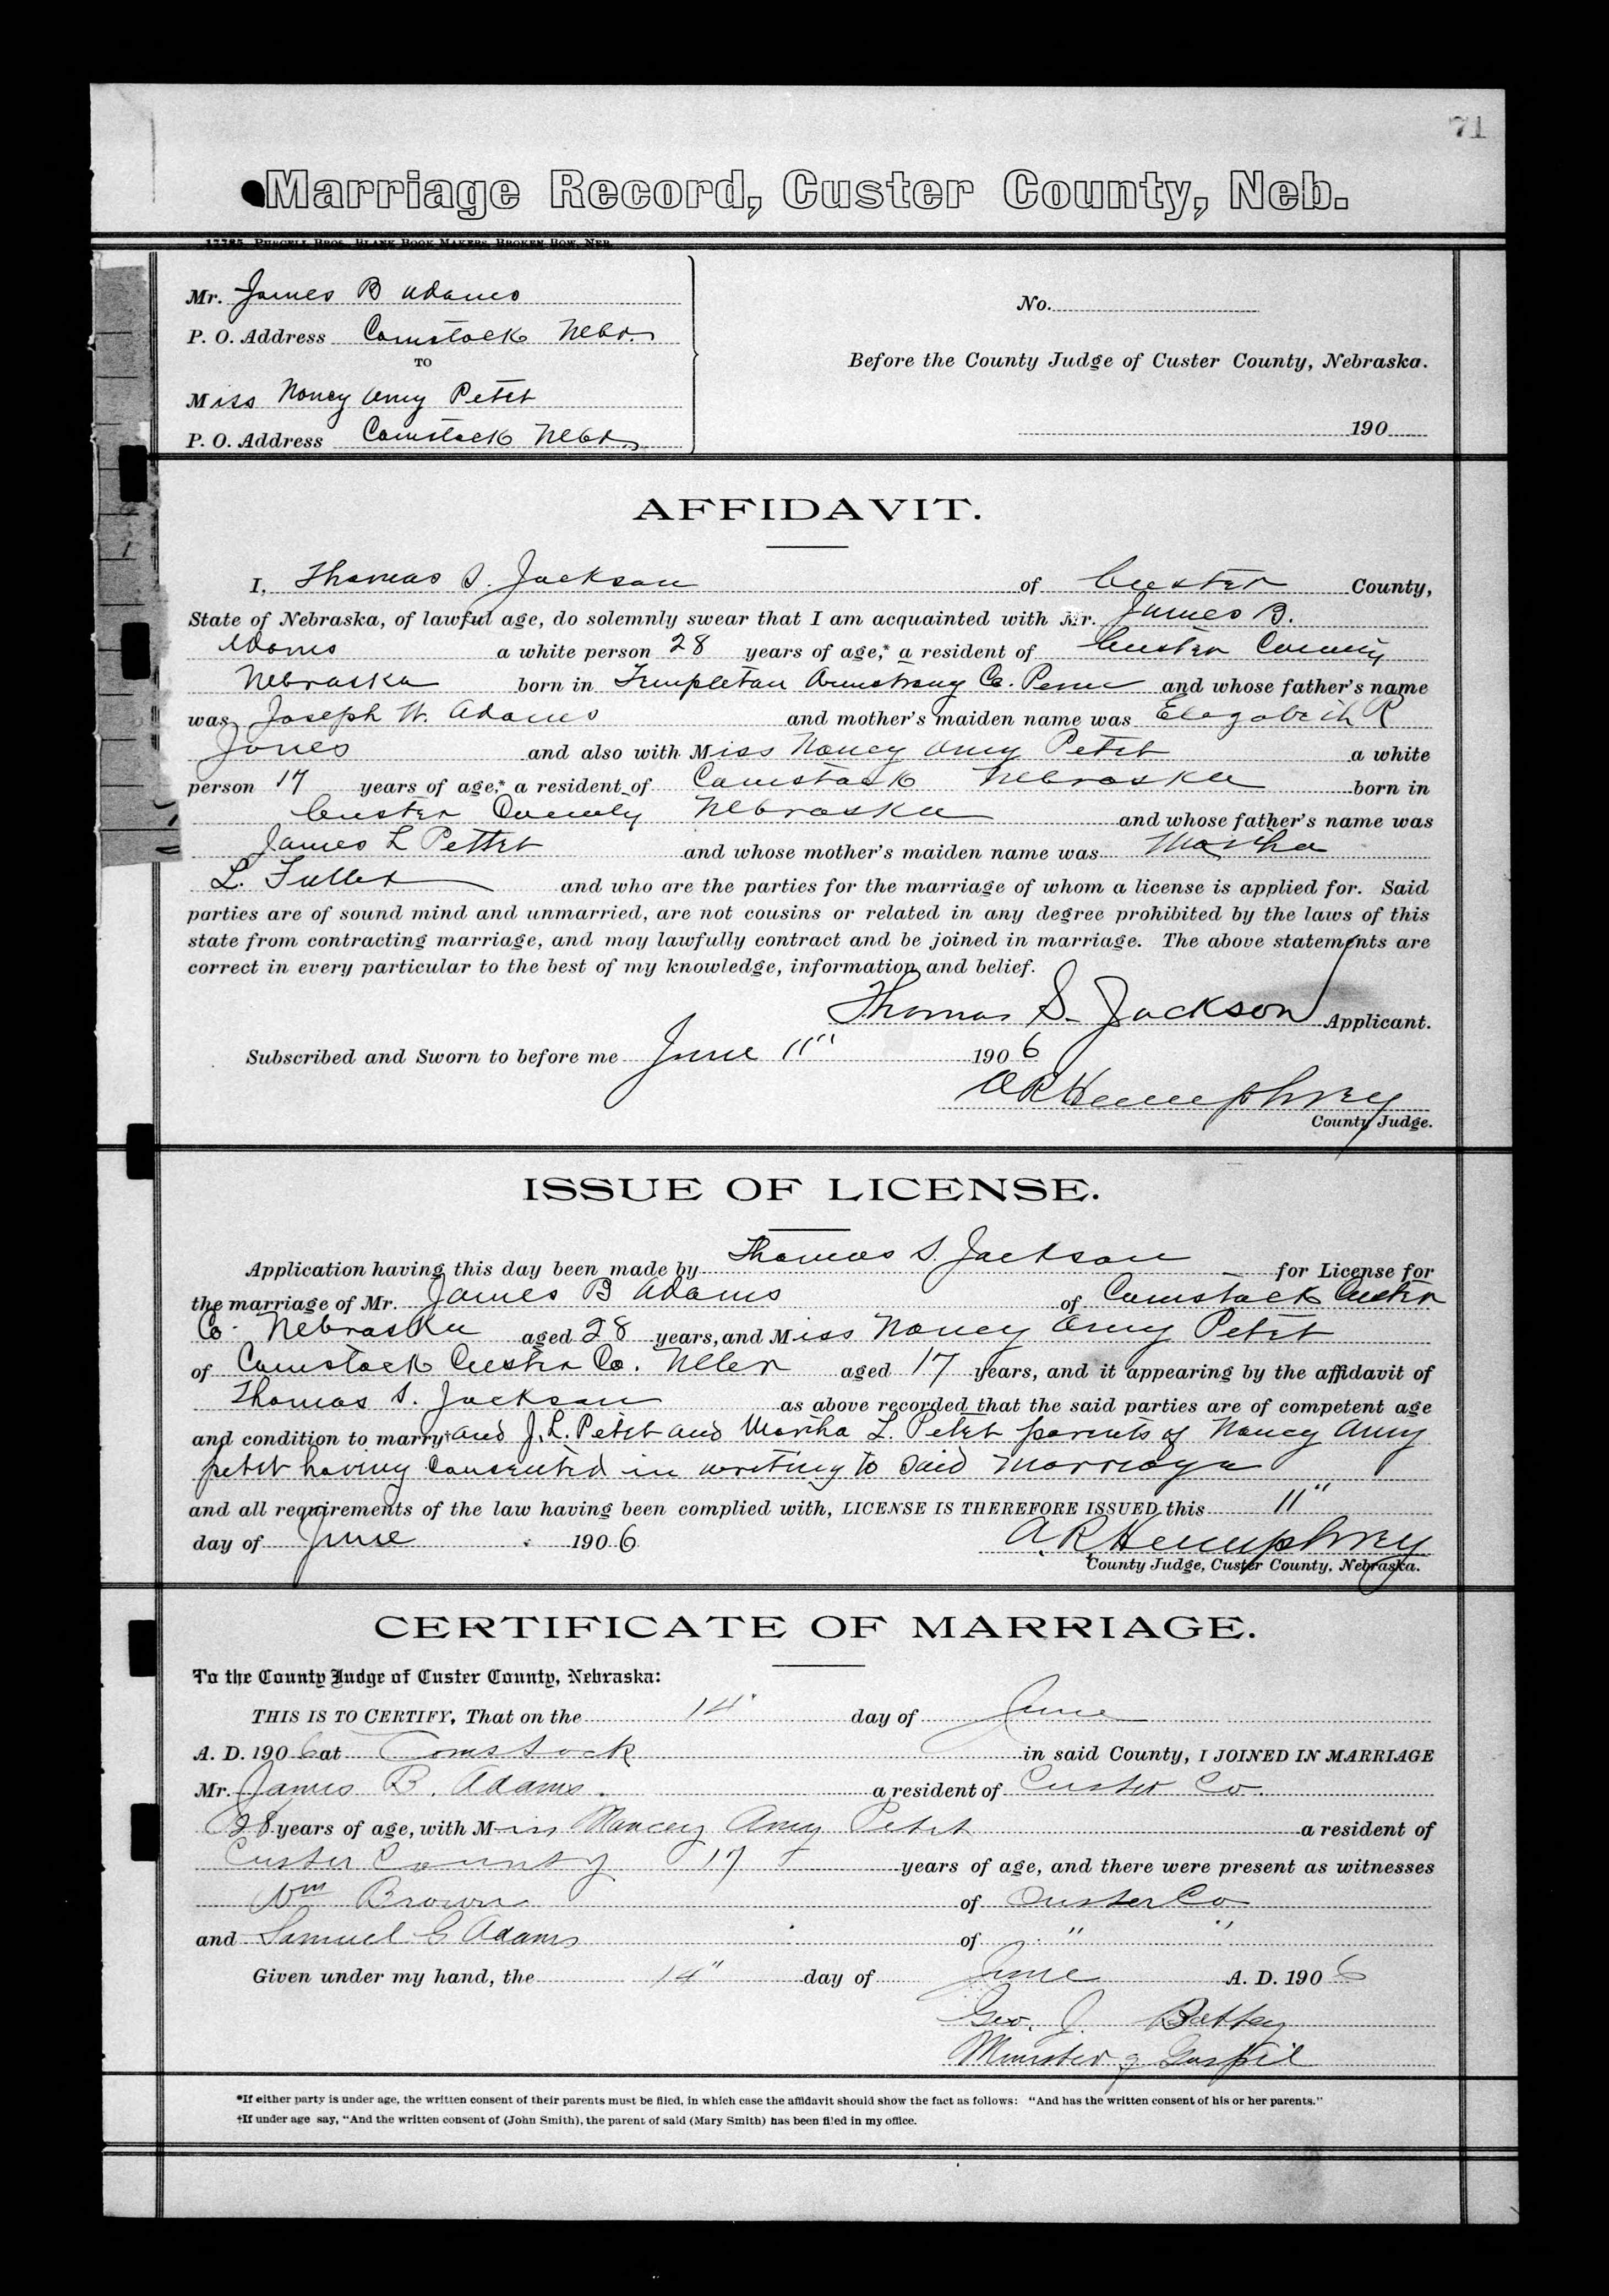 71
Marriage Record, Custer County, Neb.
17785 Purcell Bros. Blank Book Makers, Broken Bow, Neb.
Mr. James B Adams
P. O. Address Comstock Nebr.
TO
Miss Nancy Amy Petit
P. O. Address Comstock Nebr.
No.
Before the County Judge of Custer County, Nebraska.
190
AFFIDAVIT.
I, Thomas S. Jackson of Custer County,
State of Nebraska, of lawful age, do solemnly swear that I am acquainted with Mr. James B.
Adams a white person 28 years of age,* a resident of Custer County
Nebraska born in Templeton Armstrong Co. Penn and whose father's name
was Joseph W. Adams and mother's maiden name was Elezabeth R
Jones and also with Miss Nancy Amy Petit a white
person 17 years of age,* a resident of Comstock Nebraska born in
Custer County Nebraska and whose father's name was
James L Pettit and whose mother's maiden name was Martha
L. Fuller and who are the parties for the marriage of whom a license is applied for. Said
parties are of sound mind and unmarried, are not cousins or related in any degree prohibited by the laws of this
state from contracting marriage, and may lawfully contract and be joined in marriage. The above statements are
correct in every particular to the best of my knowledge, information and belief.
Thomas S. Jackson Applicant.
Subscribed and Sworn to before me June 11" 1906
A R Humphrey
County Judge.
ISSUE OF LICENSE.
Application having this day been made by Thomas S. Jackson for License for
the marriage of Mr. James B Adams of Comstock Custer
Co. Nebraska aged 28 years, and Miss Nancy Amy Petit
of Comstock Custer Co. Nebr aged 17 years, and it appearing by the affidavit of
Thomas S. Jackson as above recorded that the said parties are of competent age
and condition to marry† and J. L. Petit and Martha L. Petit parents of Nancy Amy
petit having consented in writing to said marriage
and all requirements of the law having been complied with, LICENSE IS THEREFORE ISSUED this 11"
day of June 1906 A. R. Humphrey
County Judge, Custer County, Nebraska.
CERTIFICATE OF MARRIAGE.
To the County Judge of Custer County, Nebraska:
THIS IS TO CERTIFY, That on the 14" day of June
A. D. 1906 at Comstock in said County, I JOINED IN MARRIAGE
Mr. James B. Adams. a resident of Custer Co.
28 years of age, with Miss Nancy Amy Petit a resident of
Custer County 17 years of age, and there were present as witnesses
Wm Brown of Custer Co
and Samuel G Adams of " "
Given under my hand, the 14" day of June A. D. 1906
Geo. J. Battey
Minister of Gospel
*If either party is under age, the written consent of their parents must be filed, in which case the affidavit should show the fact as follows: "And has the written consent of his or her parents."
†If under age say, "And the written consent of (John Smith), the parent of said (Mary Smith) has been filed in my office.